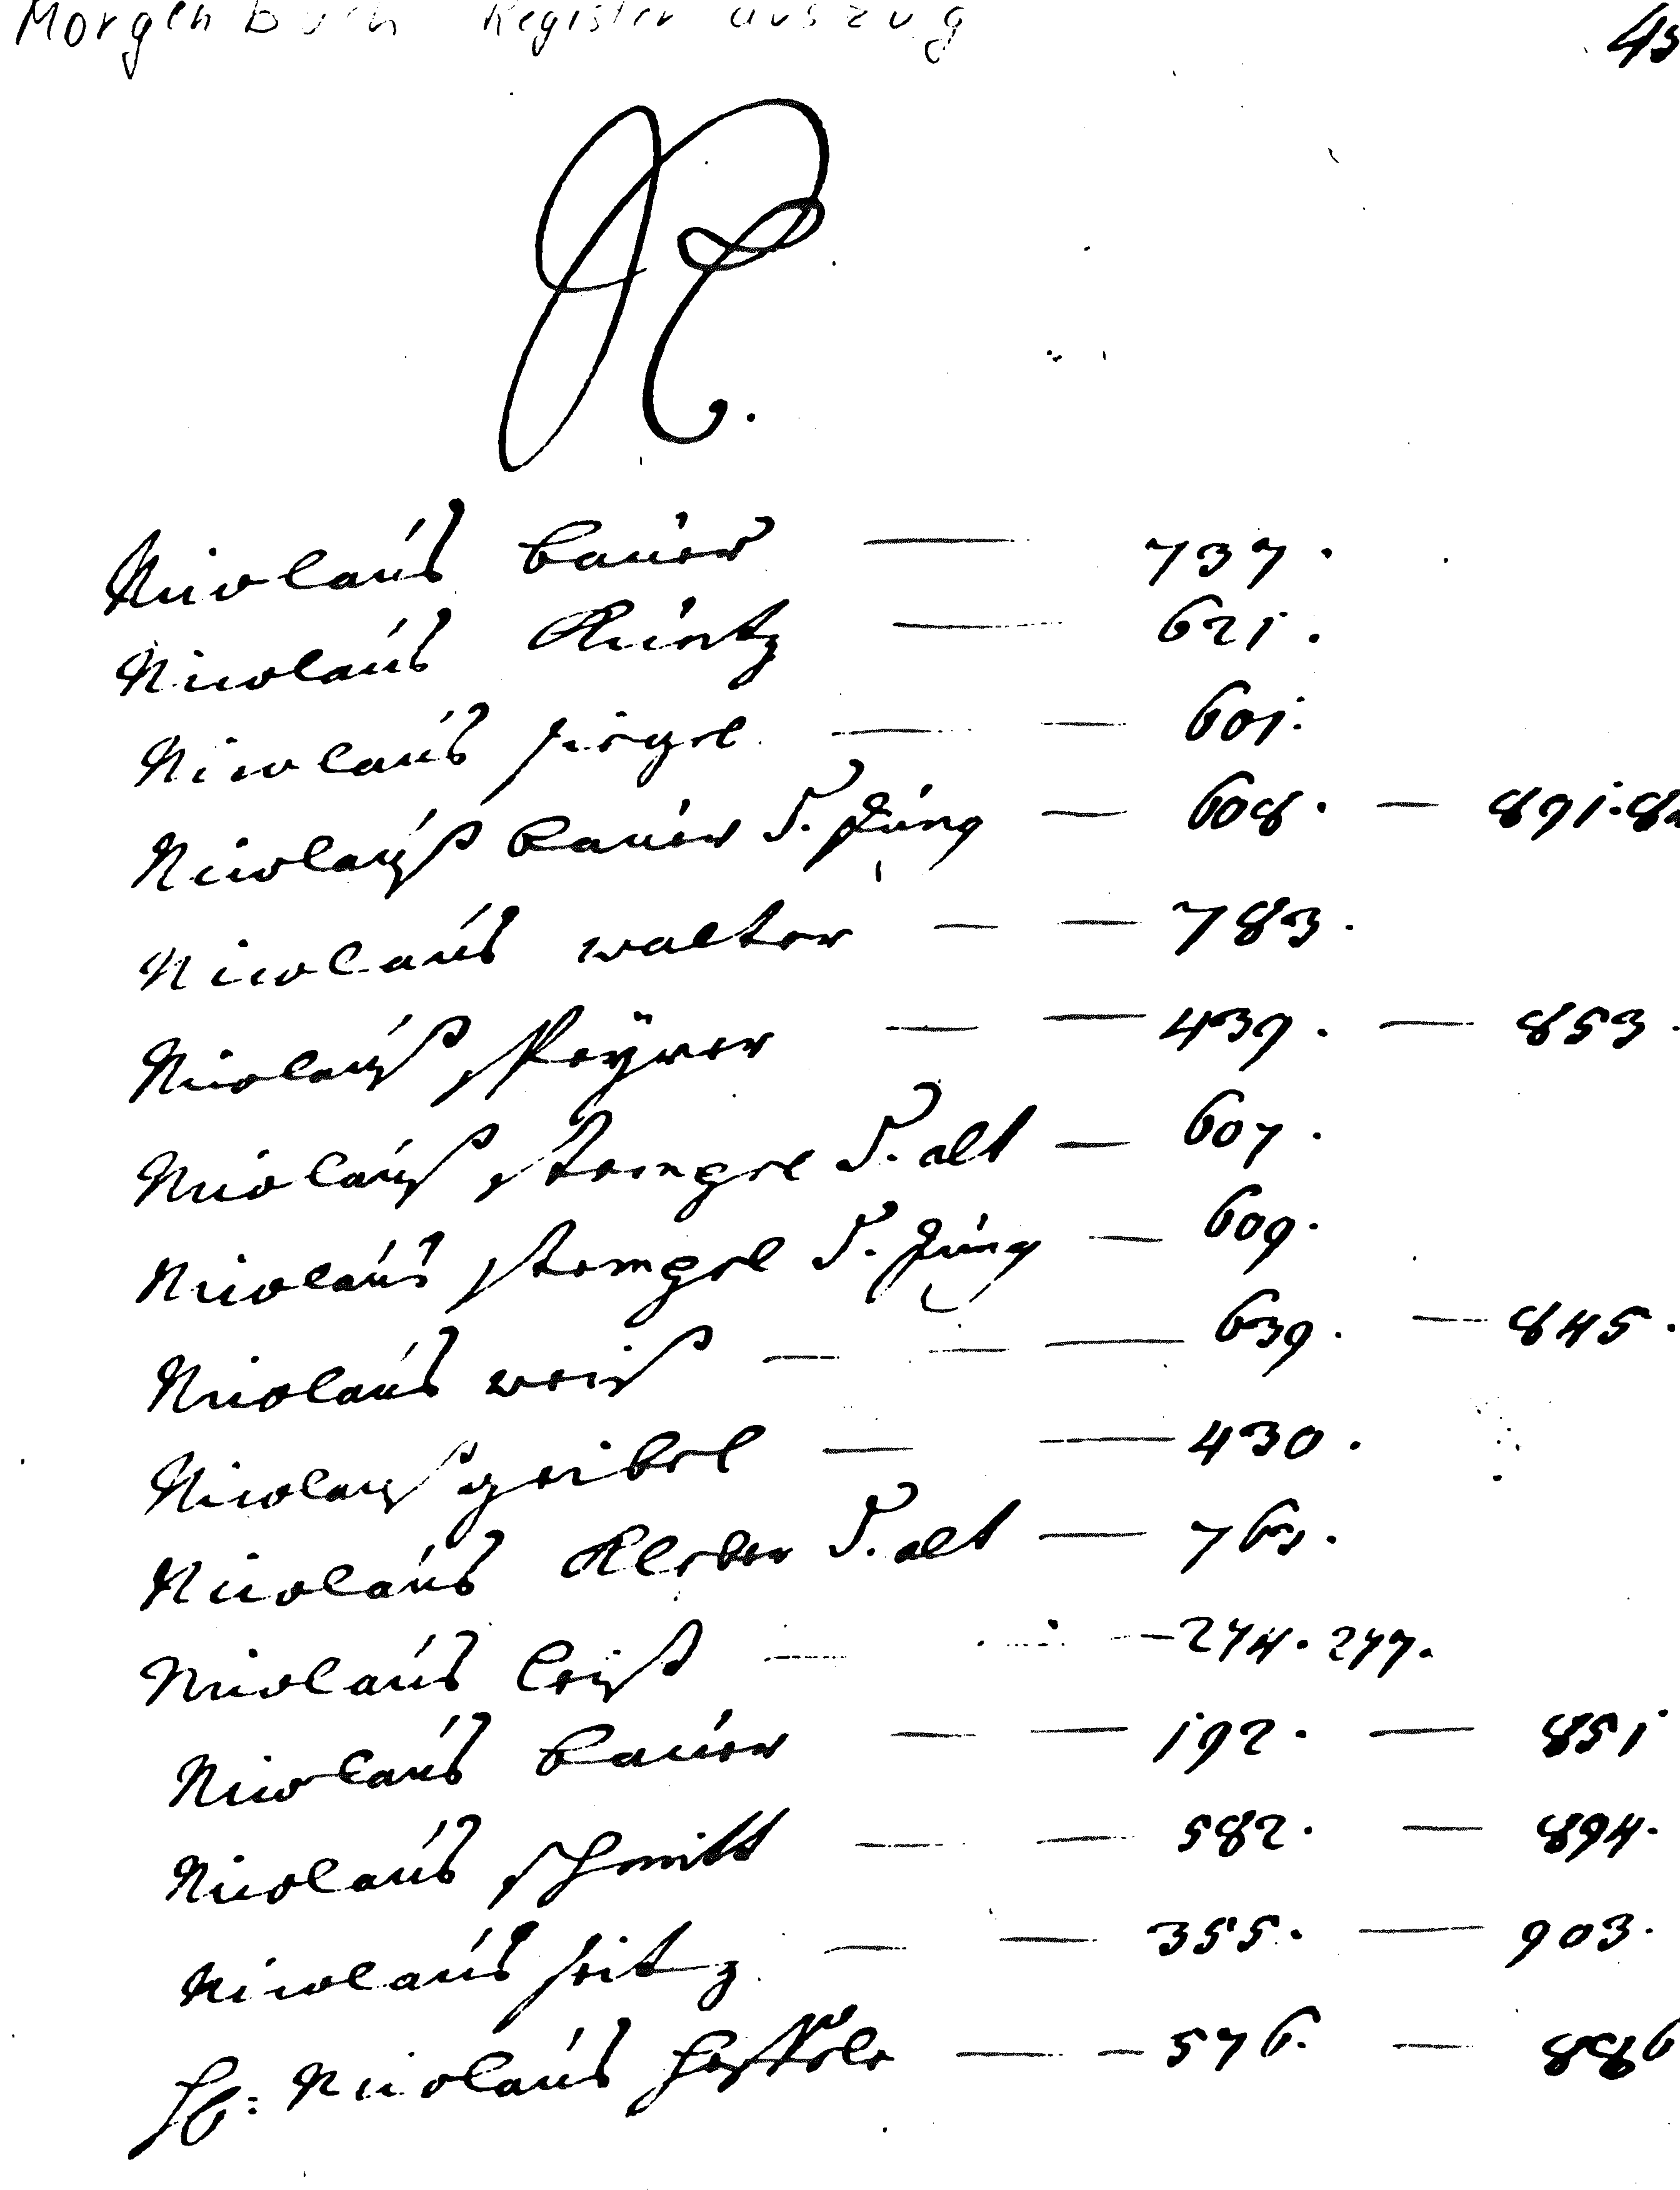 Morgenbuch Register auszug
N.
Nicolaus bauer — 737.
Nicolaus Kuntz — 621.
Nicolaus siegel — — 601.
Nicolauß bauer d. Jung — 608. — 891.
Nicolaus walter — — 783.
Nicolauß — — 439. — 853.
Nicolauß stengel d. alt — 607.
Nicolaus stengel d. Jung — 609.
Nicolaus weiß — — — 639. — 845.
Nicolauß geibel — — 430.
Nicolaus Kleber d. alt —
Nicolaus leiß — — 274. 277.
Nicolaus bauer — — 192. — 851
Nicolaus schmitt — — 582. — 894.
Nicolaus seitz — — 355. — 903.
H: Nicolaus — — 576. — 886